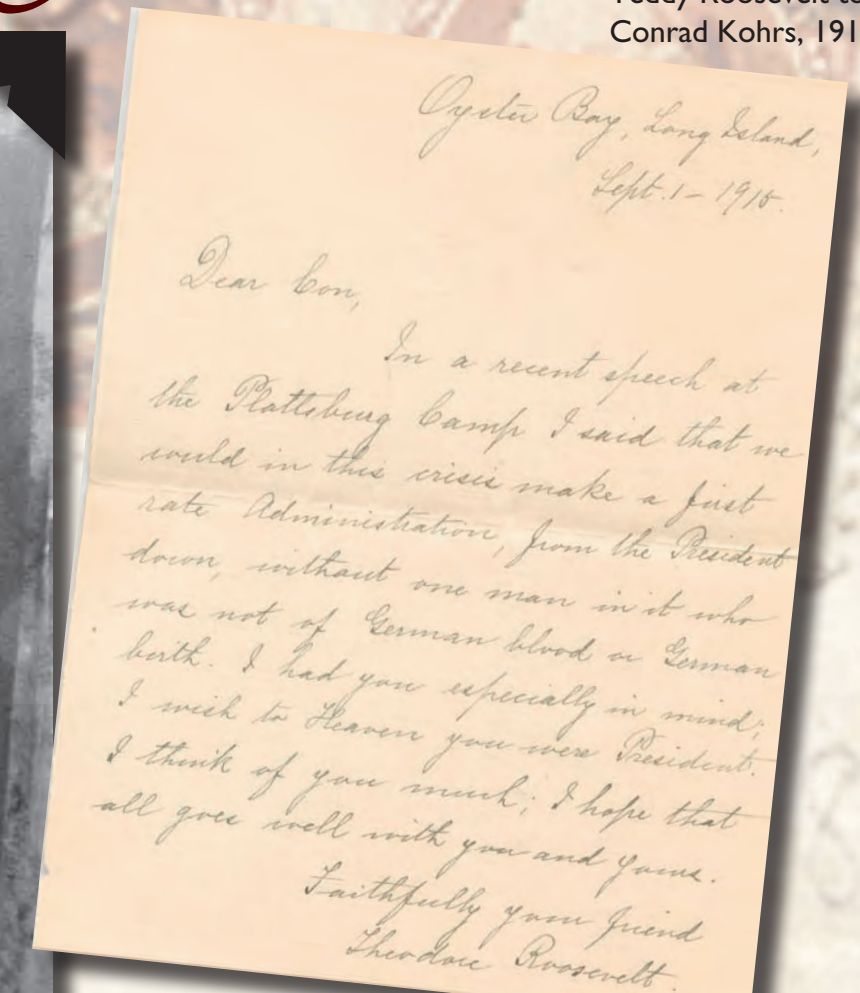 Conrad Kohrs, 191
Oyster Bay, Long Island,
Sept. 1 – 1915.
Dear Con,
In a recent speech at
the Plattsburg Camp I said that we
could in this crisis make a first
rate Administration, from the President
down, without one man in it who
was not of German blood or German
birth. I had you especially in mind;
I wish to Heaven you were President.
I think of you much; I hope that
all goes well with you and yours.
Faithfully your friend
Theodore Roosevelt.